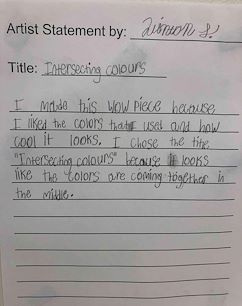 Artist Statement by: S!
Title: Intersecting colours
I made this wow piece because
I liked the colors that I used and how
cool it looks. I chose the title
"Intersecting colours" because it looks
like the colors are coming together in
the middle.